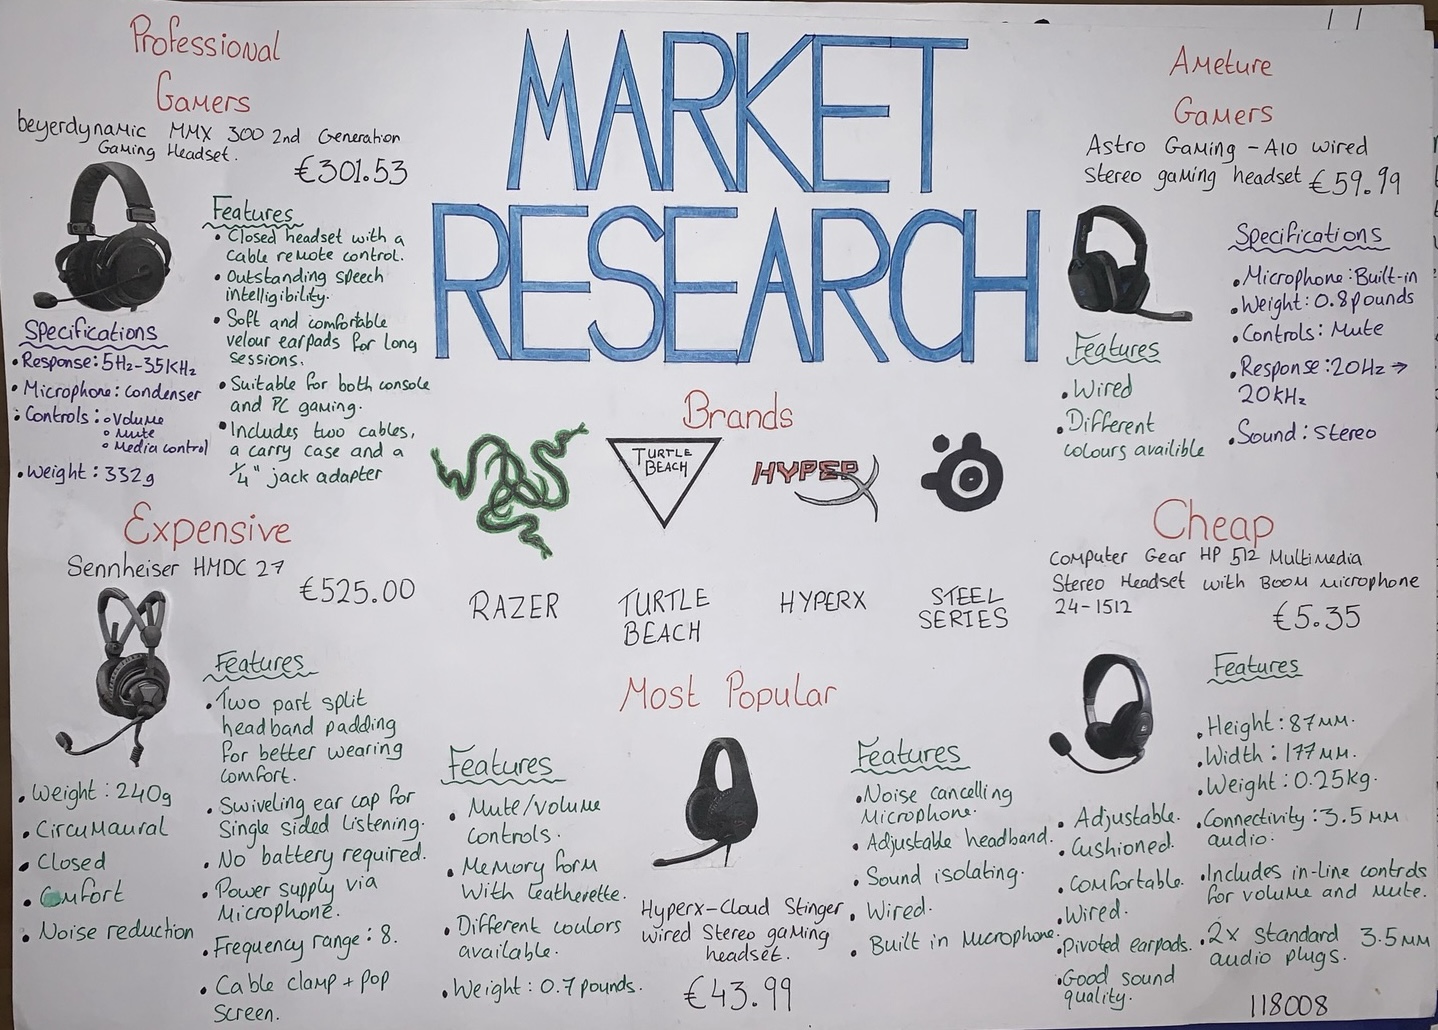 MARKET
RESEARCH
Professional
Gamers
beyerdynamic MMX 300 2nd Generation
Gaming Headset.
€301.53
Features
• Closed headset with a
cable remote control.
• Outstanding speech
intelligibility.
• Soft and comfortable
velour earpads for long
sessions.
• Suitable for both console
and PC gaming.
• Includes two cables,
a carry case and a
1/4" jack adapter
Specifications
• Response: 5Hz-35KHz
• Microphone: condenser
• Controls: ◦ Volume
◦ Mute
◦ Media control
• Weight: 332g
Ameture
Gamers
Astro Gaming - A10 wired
Stereo gaming headset €59.99
Specifications
• Microphone: Built-in
• Weight: 0.8 pounds
• Controls: Mute
• Response: 20Hz →
20kHz
• Sound: Stereo
Features
• Wired
• Different
colours availible
Brands
TURTLE
BEACH
HYPERX
RAZER
TURTLE
BEACH
HYPERX
STEEL
SERIES
Expensive
Sennheiser HMDC 27
€525.00
Features
• Two part split
headband padding
for better wearing
comfort.
• Swiveling ear cap for
Single sided Listening.
• No battery required.
• Power supply via
Microphone.
• Frequency range: 8.
• Cable clamp + pop
screen.
• Weight: 240g
• Circumaural
• Closed
• Comfort
• Noise reduction
Most Popular
Features
• Mute/volume
controls.
• Memory form
With leatherette.
• Different coulors
available.
• Weight: 0.7 pounds.
Hyperx-Cloud Stinger
wired Stereo gaming
headset.
€43.99
Features
• Noise cancelling
Microphone.
• Adjustable headband.
• Sound isolating.
• Wired.
• Built in Microphone.
Cheap
Computer Gear HP 512 Multimedia
Stereo Headset with Boom microphone
24-1512
€5.35
Features
• Height: 87mm.
• Width: 177mm.
• Weight: 0.25kg.
• Connectivity: 3.5mm
audio.
• Includes in-line controls
for volume and mute.
• 2x Standard 3.5mm
audio plugs.
• Adjustable.
• Cushioned.
• Comfortable.
• Wired.
• Pivoted earpads.
• Good sound
quality.
118008